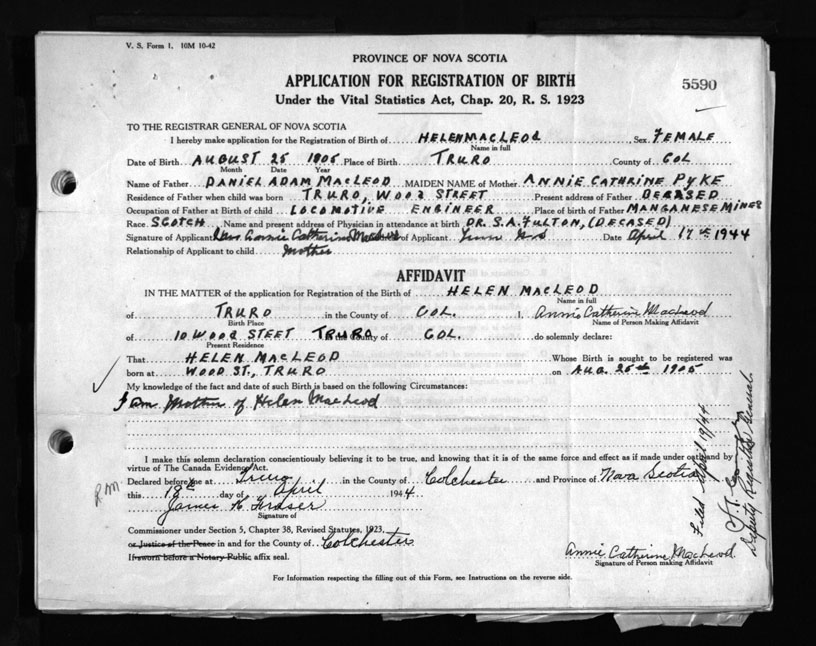 V. S. Form 1. 10M 10-42
PROVINCE OF NOVA SCOTIA
APPLICATION FOR REGISTRATION OF BIRTH
5590
Under the Vital Statistics Act, Chap. 20, R. S. 1923
TO THE REGISTRAR GENERAL OF NOVA SCOTIA
I hereby make application for the Registration of Birth of HELEN MACLEOD Sex FEMALE
Name in full
Date of Birth AUGUST 25 1905 Place of Birth TRURO County of COL
Month Date Year
Name of Father DANIEL ADAM MACLEOD MAIDEN NAME of Mother ANNIE CATHRINE PYKE
Residence of Father when child was born TRURO, WOOD STREET Present address of Father DECASED
Occupation of Father at Birth of child LOCOMOTIVE ENGINEER Place of birth of Father MANGANESE MINES
Race SCOTCH Name and present address of Physician in attendance at birth DR. S.A. FULTON, (DECASED)
Signature of Applicant Mrs Annie Catherine MacLeod of Applicant Date April 17th 1944
Relationship of Applicant to child Mother
AFFIDAVIT
IN THE MATTER of the application for Registration of the Birth of HELEN MACLEOD
Name in full
of TRURO in the County of COL. I, Annie Catherine MacLeod
Birth Place Name of Person Making Affidavit
of 10 WOOD STEET TRURO the County of COL. do solemnly declare:
Present Residence
That HELEN MACLEOD Whose Birth is sought to be registered was
born at WOOD ST., TRURO on AUG. 25th 1905
My knowledge of the fact and date of such Birth is based on the following Circumstances:
I am Mother of Helen MacLeod
I make this solemn declaration conscientiously believing it to be true, and knowing that it is of the same force and effect as if made under oath and by
virtue of The Canada Evidence Act.
Declared before me at Truro in the County of Colchester and Province of Nova Scotia
R.M. this 18th day of April 1944
James K. Fraser
Signature of
Commissioner under Section 5, Chapter 38, Revised Statutes, 1923,
or Justice of the Peace in and for the County of Colchester
If sworn before a Notary Public affix seal.
Annie Catherine MacLeod
Signature of Person making Affidavit
For Information respecting the filling out of this Form, see Instructions on the reverse side.
Filed April 19/44
Deputy Registrar General.